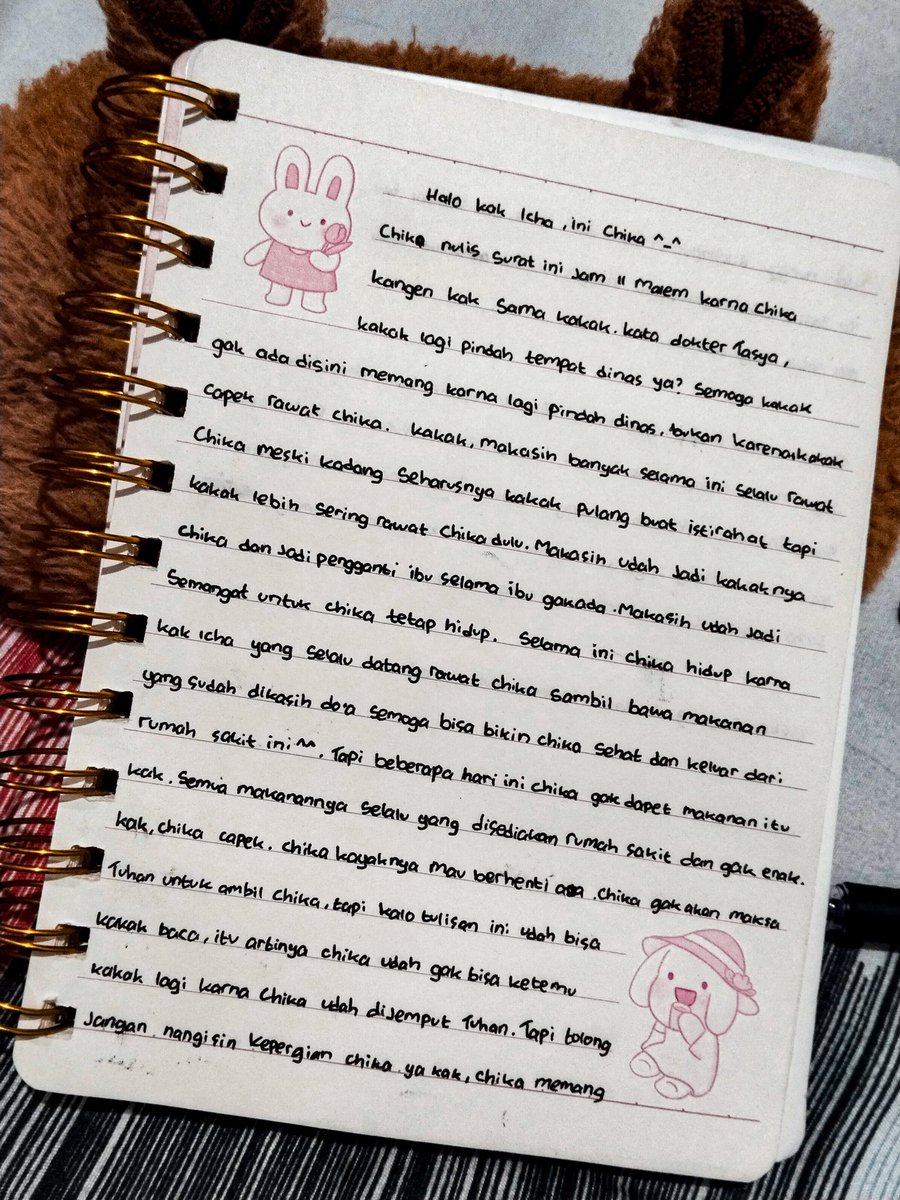 Halo kak Icha, ini Chika ^_^
Chika nulis surat ini jam 11 malem karna Chika
kangen kak sama kakak. kata dokter Tasya,
kakak lagi pindah tempat dinas ya? semoga kakak
gak ada disini memang karna lagi pindah dinas, bukan karena kakak
capek rawat chika. kakak, makasih banyak selama ini selalu rawat
Chika meski kadang seharusnya kakak pulang buat istirahat tapi
kakak lebih sering rawat Chika dulu. Makasih udah jadi kakaknya
chika dan jadi pengganti ibu selama ibu gakada. Makasih udah jadi
Semangat untuk chika tetap hidup. Selama ini chika hidup karna
kak Icha yang selalu datang rawat chika sambil bawa makanan
yang sudah dikasih do'a semoga bisa bikin chika sehat dan keluar dari
rumah sakit ini ^^. Tapi beberapa hari ini chika gak dapet makanan itu
kak. Semua makanannya selalu yang disediakan rumah sakit dan gak enak.
kak, chika capek. chika kayaknya mau berhenti aja. chika gak akan maksa
Tuhan untuk ambil chika, tapi kalo tulisan ini udah bisa
kakak baca, itu artinya chika udah gak bisa ketemu
kakak lagi karna Chika udah dijemput Tuhan. Tapi tolong
Jangan nangisin kepergian chika ya kak, chika memang